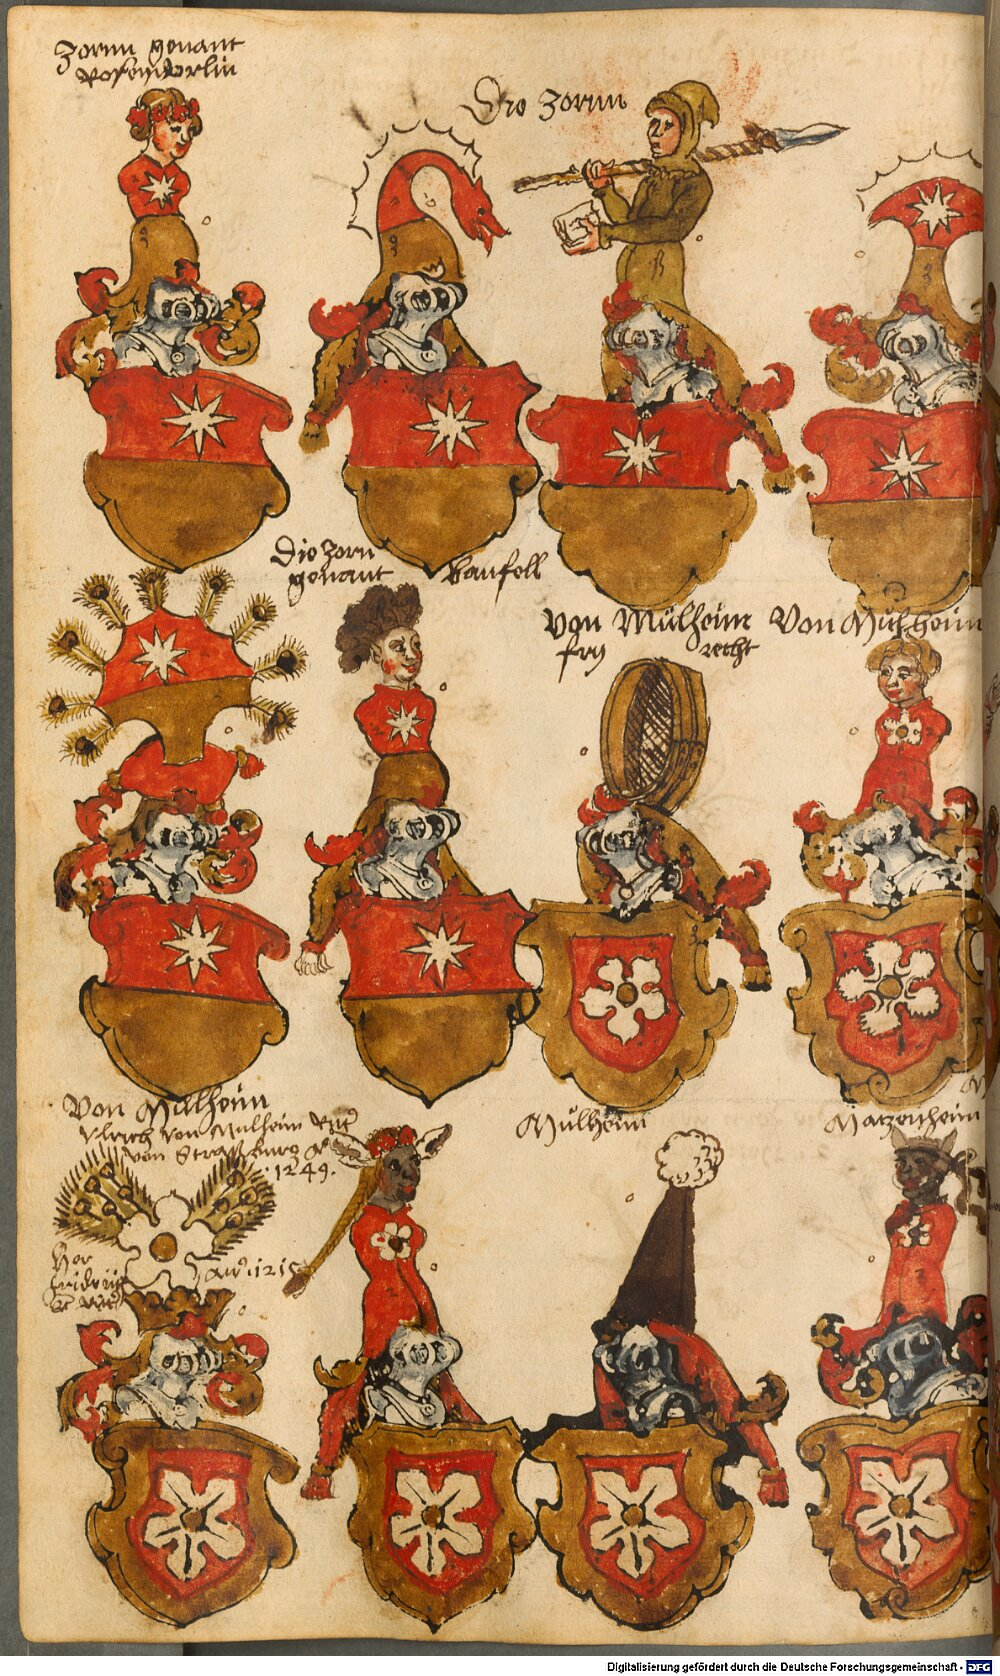 Zornn genant
Rosenderlin
Die Zornn
Die Zorn
genant Banfell
Von Mülheim
fry recht
Von Mülheim
Von Mülheim
Vlrich von Mülheim Ritt
von Straßburg
1249.
Her
Mülheim
Matzenheim
Digitalisierung gefördert durch die Deutsche Forschungsgemeinschaft - DFG